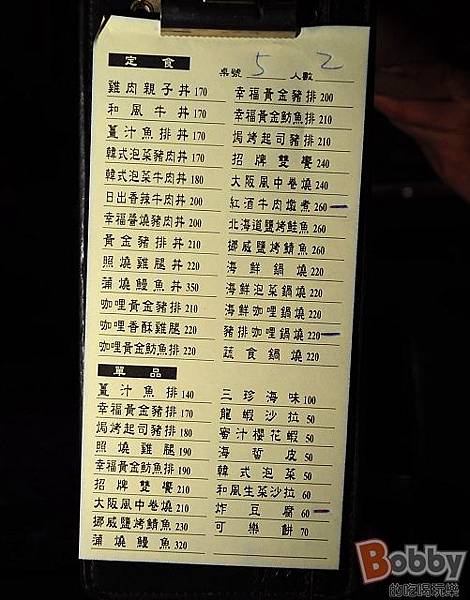 定食
桌號 5 人數 2
雞肉親子丼 170
和風牛丼 170
薑汁魚排丼 170
韓式泡菜豬肉丼 170
韓式泡菜牛肉丼 180
日出香辣牛肉丼 200
幸福醬燒豬肉丼 200
黃金豬排丼 210
照燒雞腿丼 220
蒲燒鰻魚丼 350
咖哩黃金豬排 210
咖哩香酥雞腿 220
咖哩黃金魴魚排 220
幸福黃金豬排 200
幸福黃金魴魚排 210
焗烤起司豬排 210
招牌雙饗 240
大阪風中卷燒 240
紅酒牛肉燉煮 260
北海道鹽烤鮭魚 260
挪威鹽烤鯖魚 260
海鮮鍋燒 220
海鮮泡菜鍋燒 220
海鮮咖哩鍋燒 220
豬排咖哩鍋燒 220
蔬食鍋燒 220
單品
薑汁魚排 140
幸福黃金豬排 170
焗烤起司豬排 180
照燒雞腿 190
幸福黃金魴魚排 190
招牌雙饗 210
大阪風中卷燒 210
挪威鹽烤鯖魚 230
蒲燒鰻魚 320
三珍海味 100
龍蝦沙拉 50
蜜汁櫻花蝦 50
海蜇皮 50
韓式泡菜 50
和風生菜沙拉 60
炸豆腐 60
可樂餅 70
Bobby
的吃喝玩樂